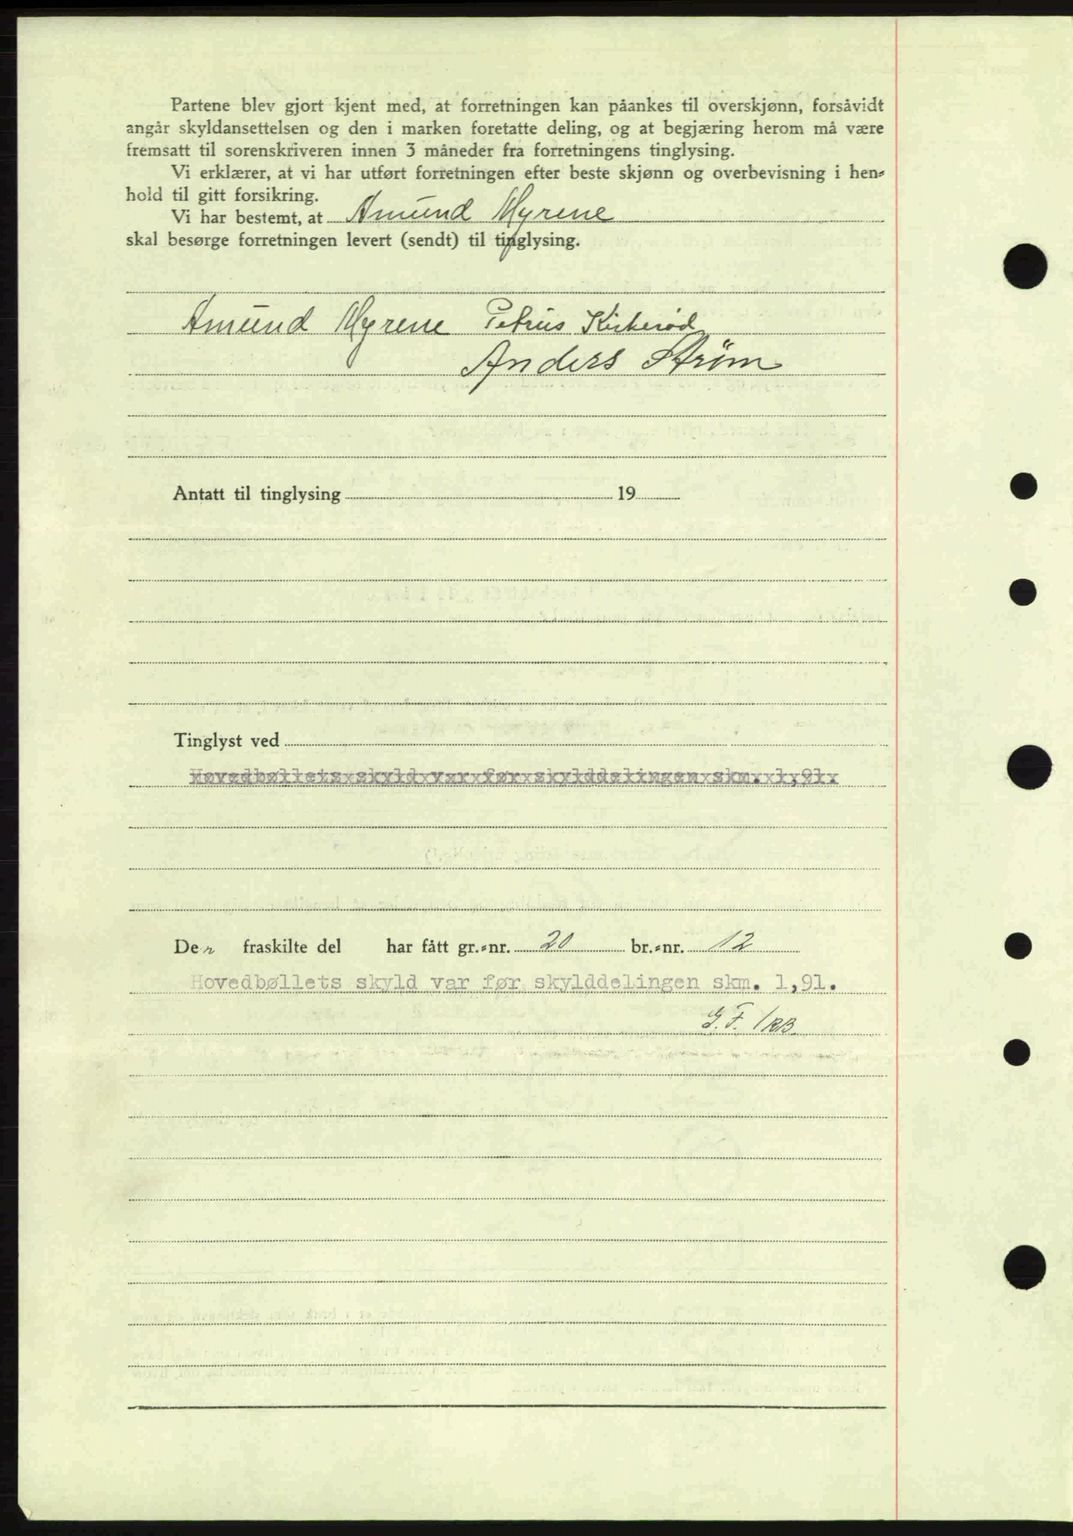 Partene blev gjort kjent med, at forretningen kan påankes til overskjønn, forsåvidt
angår skyldansettelsen og den i marken foretatte deling, og at begjæring herom må være
fremsatt til sorenskriveren innen 3 måneder fra forretningens tinglysing.
Vi erklærer, at vi har utført forretningen efter beste skjønn og overbevisning i hen-
hold til gitt forsikring.
Vi har bestemt, at Amund Myrene
skal besørge forretningen levert (sendt) til tinglysing.
Amund Myrene Petrus Kirkerød
Anders Strøm
Antatt til tinglysing 19
Tinglyst ved
Hovedbøllets skyld var før skylddelingen skm. 1,91.
Den fraskilte del har fått gr.-nr. 20 br.-nr. 12
Hovedbøllets skyld var før skylddelingen skm. 1,91.
G.F. /RB.